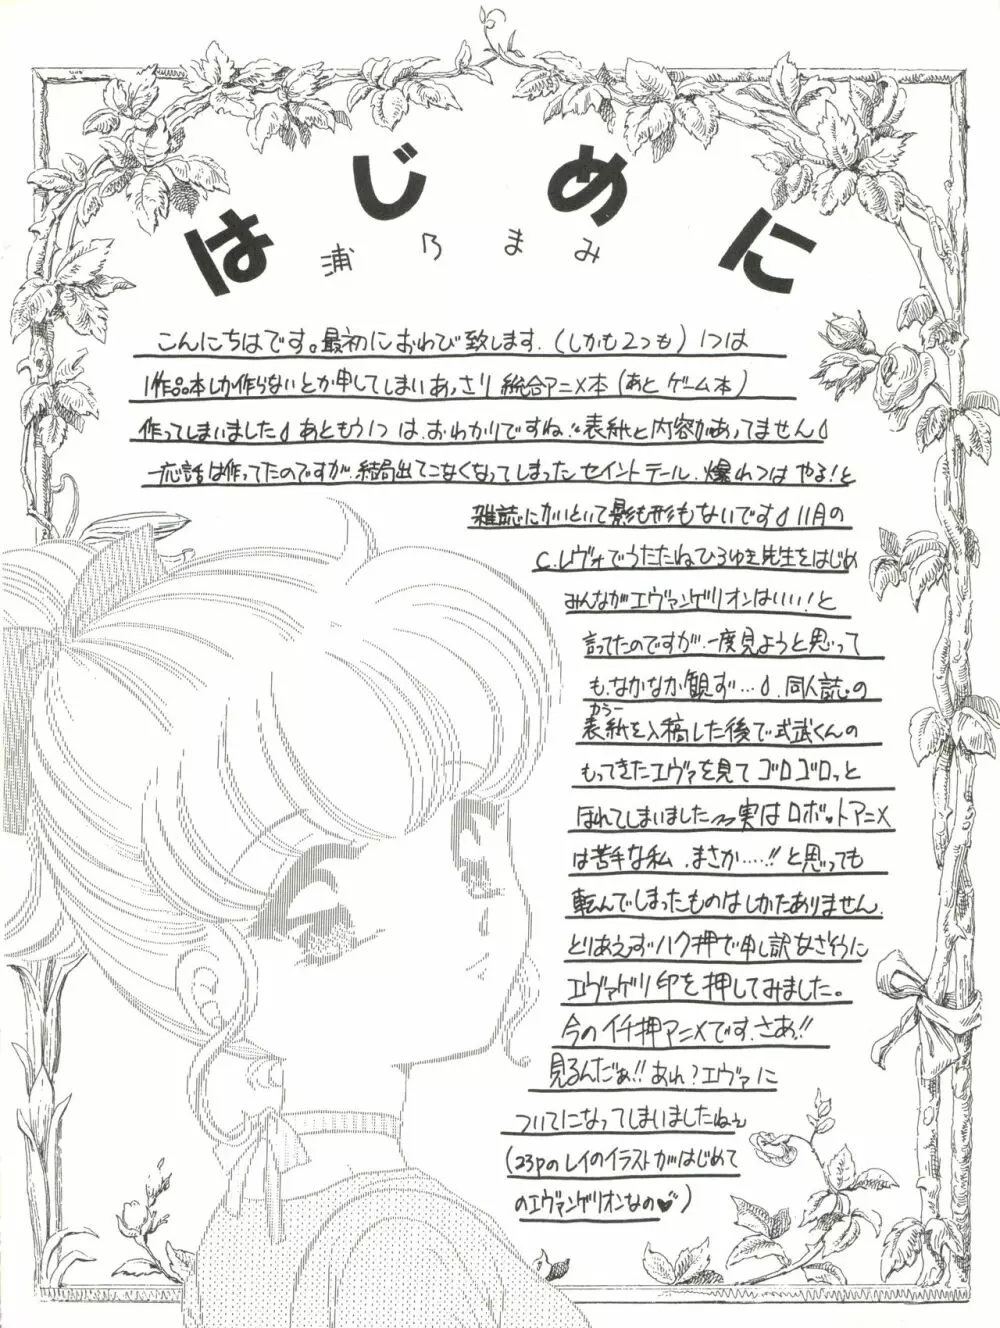 はじめに
浦乃まみ
こんにちはです。最初におわび致します.(しかも2つも)1つは
1作品本しか作らないとか申してしまいあっさり総合アニメ本(あとゲーム本)
作ってしまいました あともう1つは、おわかりですね!!表紙と内容があってません
一応話は作ってたのですが、結局出てこなくなってしまったセイントテール.爆れつはやる!と
雑誌にかいといて影も形もないです 11月の
C.レヴォでうたたねひろゆき先生をはじめ
みんながエヴァンゲリオンはいい!と
言ってたのですが、一度見ようと思って
も、なかなか観ず…、同人誌の
カラー
表紙を入稿した後で式武くんの
もってきたエヴァを見てゴロゴロっと
ほれてしまいました 実はロボットアニメ
は苦手な私.まさか……!!と思っても
転んでしまったものはしかたありません.
とりあえずハク押で申し訳なさそうに
エヴァゲリ印を押してみました。
今のイチ押アニメです.さあ!!
見るんだぁ!!あれ?エヴァに
ついてになってしまいましたねぇ
(23Pのレイのイラストがはじめて
のエヴァンゲリオンなの♥)